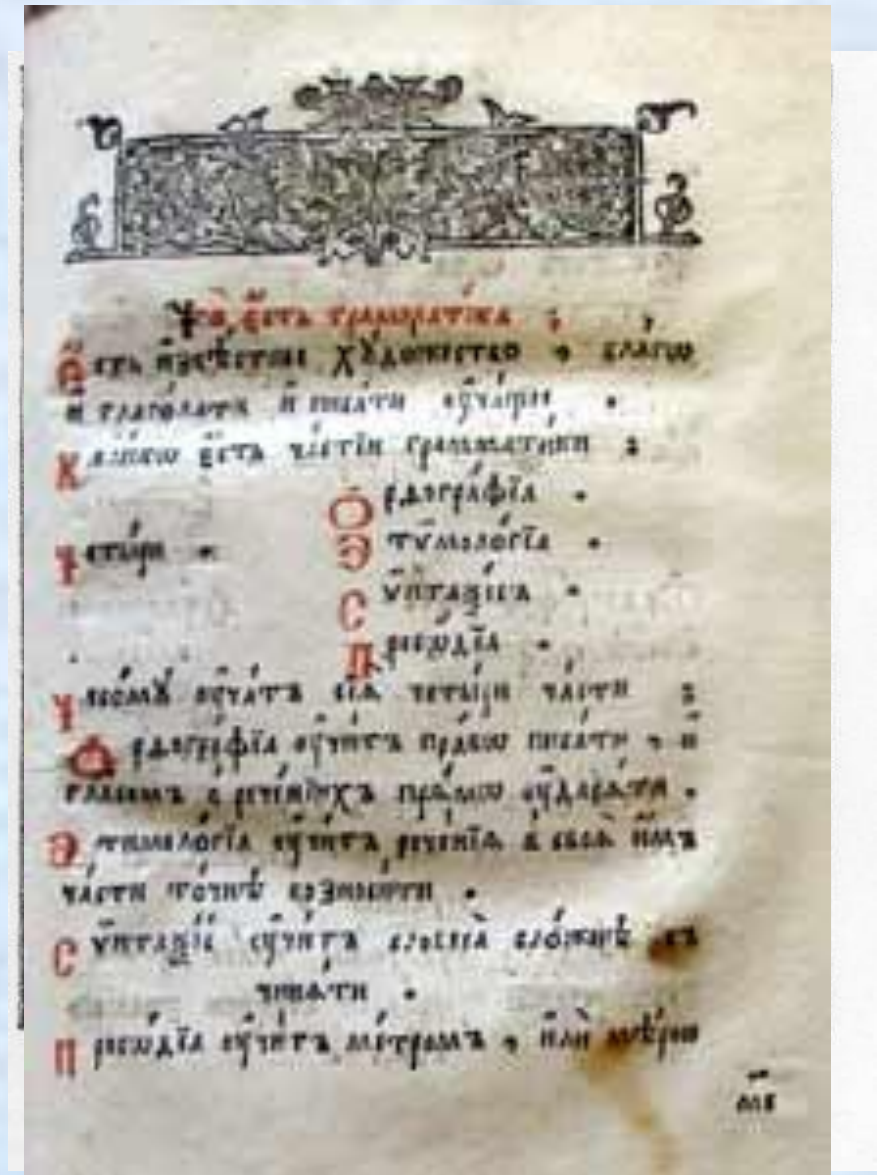 Что̀ є҆сть грамматі́ка ;
Е҆сть и҆звѣ́стное хꙋдо́жество , благѡ
и҆ глаго́лати и҆ писа́ти оу҆ча́щее .
Коли́кѡ є҆сть часті́й грамматі́ки ;
Ѻ҆рѳогра́фїа .
Четы́ри . Э҆тѷмоло́гїа .
Сѷ́нтаѯїсъ .
Просѡ́дїа .
Чесомꙋ̀ оу҆ча́тъ сїѧ̑ четы́ри ча̑сти ;
Ѻ҆рѳогра́фїа оу҆чи́тъ пра́вѡ писа́ти , и҆
гла́сомъ в̾ рече́нїихъ пра́мѡ оу҆дарѧ́ти .
Э҆тимоло́гїа оу҆чи́тъ рече́нїѧ в̾ своѧ̑ и҆̀мъ
ча́сти то́чнѣ возноси́ти .
Сѷ́нтаѯїс оу҆чи́тъ словеса̀ сло́жнѣ съ
чинѧ́ти .
Просѡ́дїа оу҆чи́тъ ме́тромъ , и҆лѝ мѣ́рою